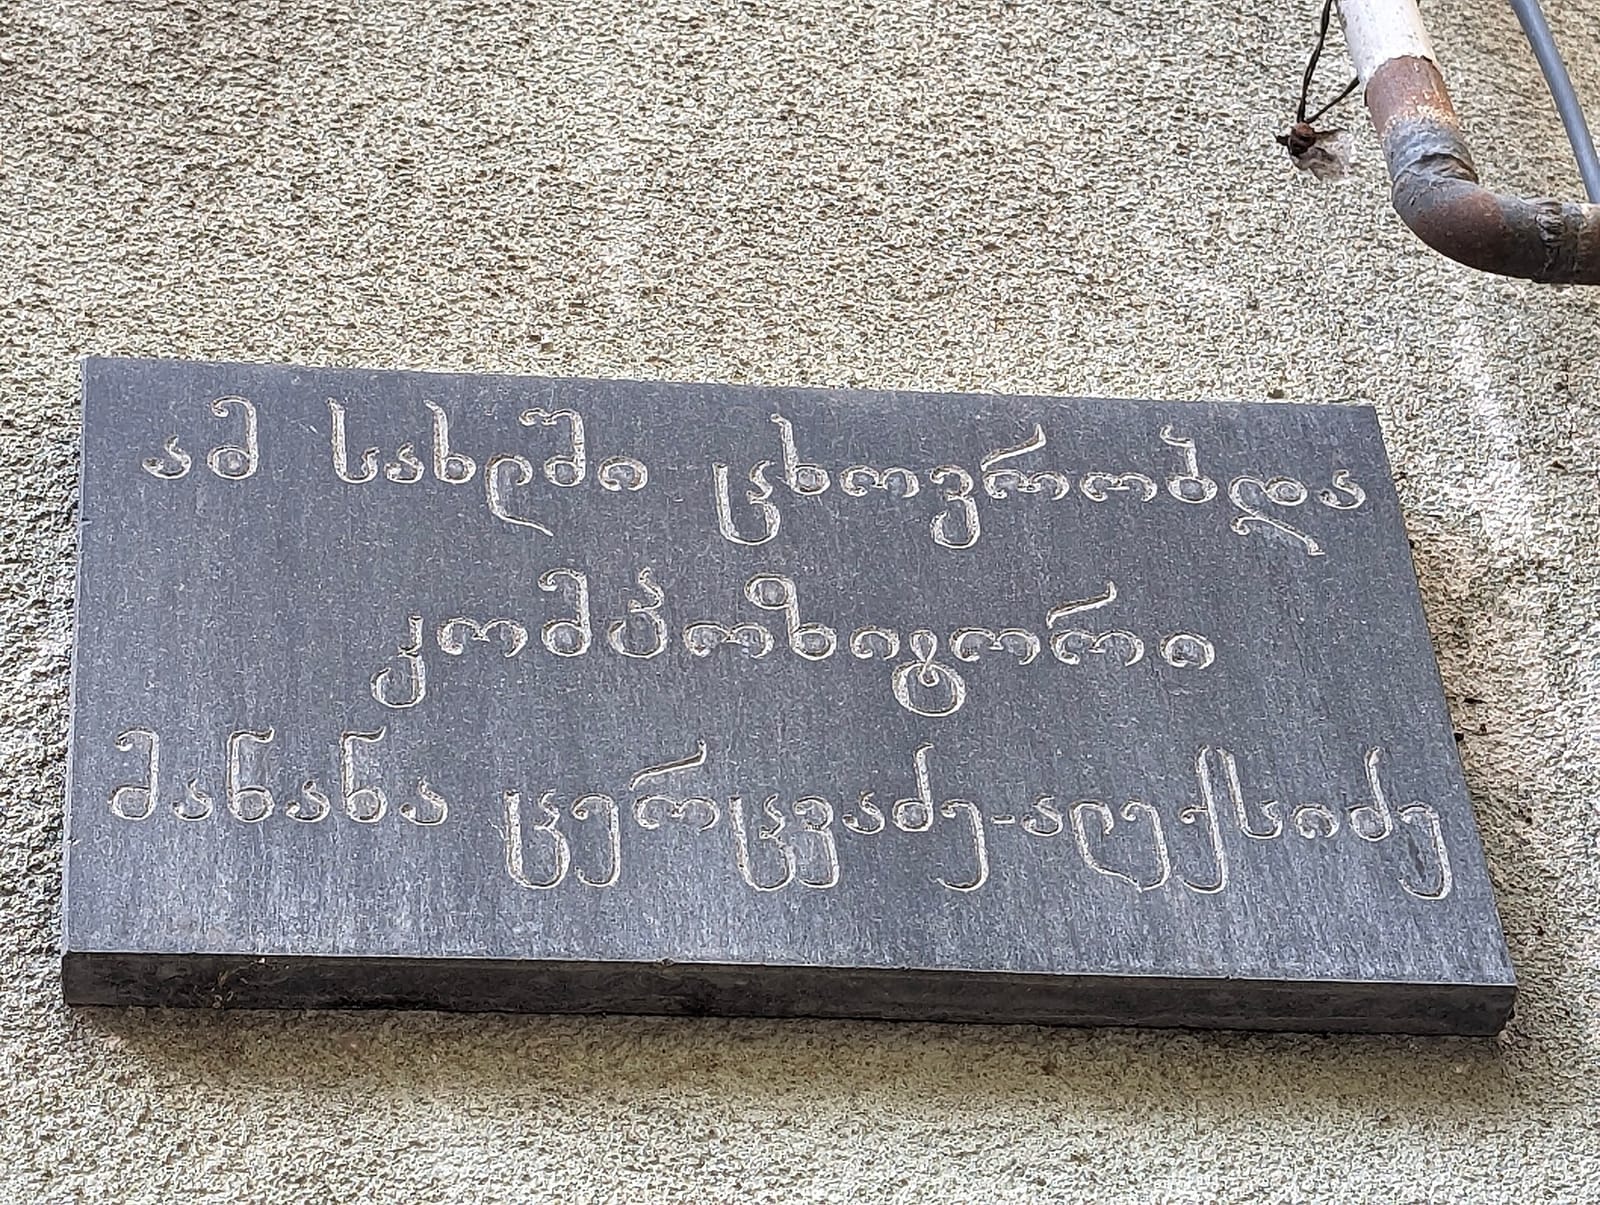 ამ სახლში ცხოვრობდა
კომპოზიტორი
მანანა ცერცვაძე-ალექსიძე